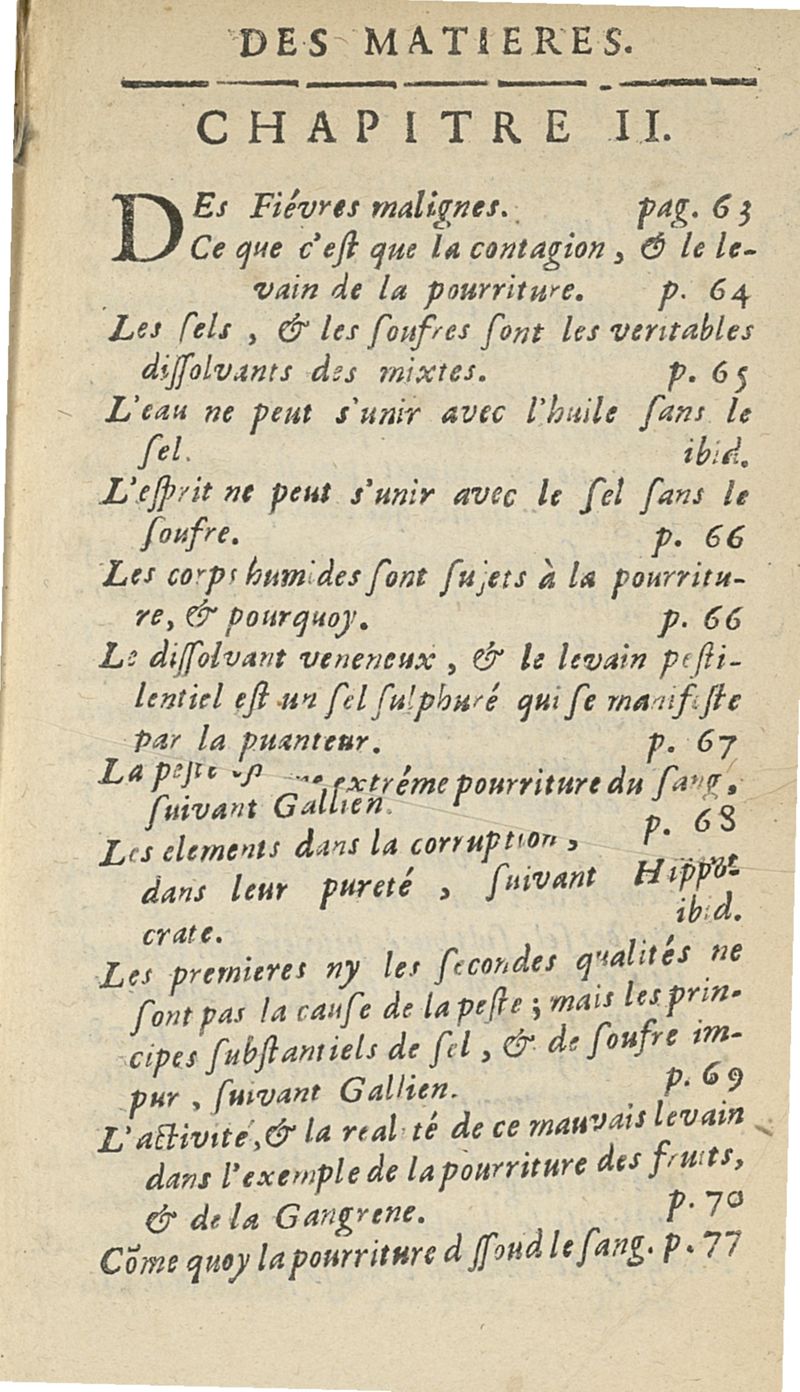 DES MATIERES.
CHAPITRE II.
DEs Fiévres malignes. pag. 63
Ce que c'eſt que la contagion, & le le-
vain de la pourriture. p. 64
Les ſels, & les ſoufres ſont les veritables
diſſolvants des mixtes. p. 65
L'eau ne peut s'unir avec l'huile ſans le
ſel. ibid.
L'eſprit ne peut s'unir avec le ſel ſans le
ſoufre. p. 66
Les corps humides ſont ſujets à la pourritu-
re, & pourquoy. p. 66
Le diſſolvant veneneux, & le levain peſti-
lentiel eſt un ſel ſulphuré qui ſe manifeſte
par la puanteur. p. 67
La peſte eſt une extréme pourriture du ſang,
ſuivant Gallien. p. 68
Les elements dans la corruption,
dans leur pureté, ſuivant Hippo-
crate. ibid.
Les premieres ny les ſecondes qualités ne
ſont pas la cauſe de la peſte; mais les prin-
cipes ſubſtantiels de ſel, & de ſoufre im-
pur, ſuivant Gallien. p. 69
L'activité, & la realité de ce mauvais levain
dans l'exemple de la pourriture des fruits,
& de la Gangrene. p. 70
Cõme quoy la pourriture diſſoud le ſang. p. 77